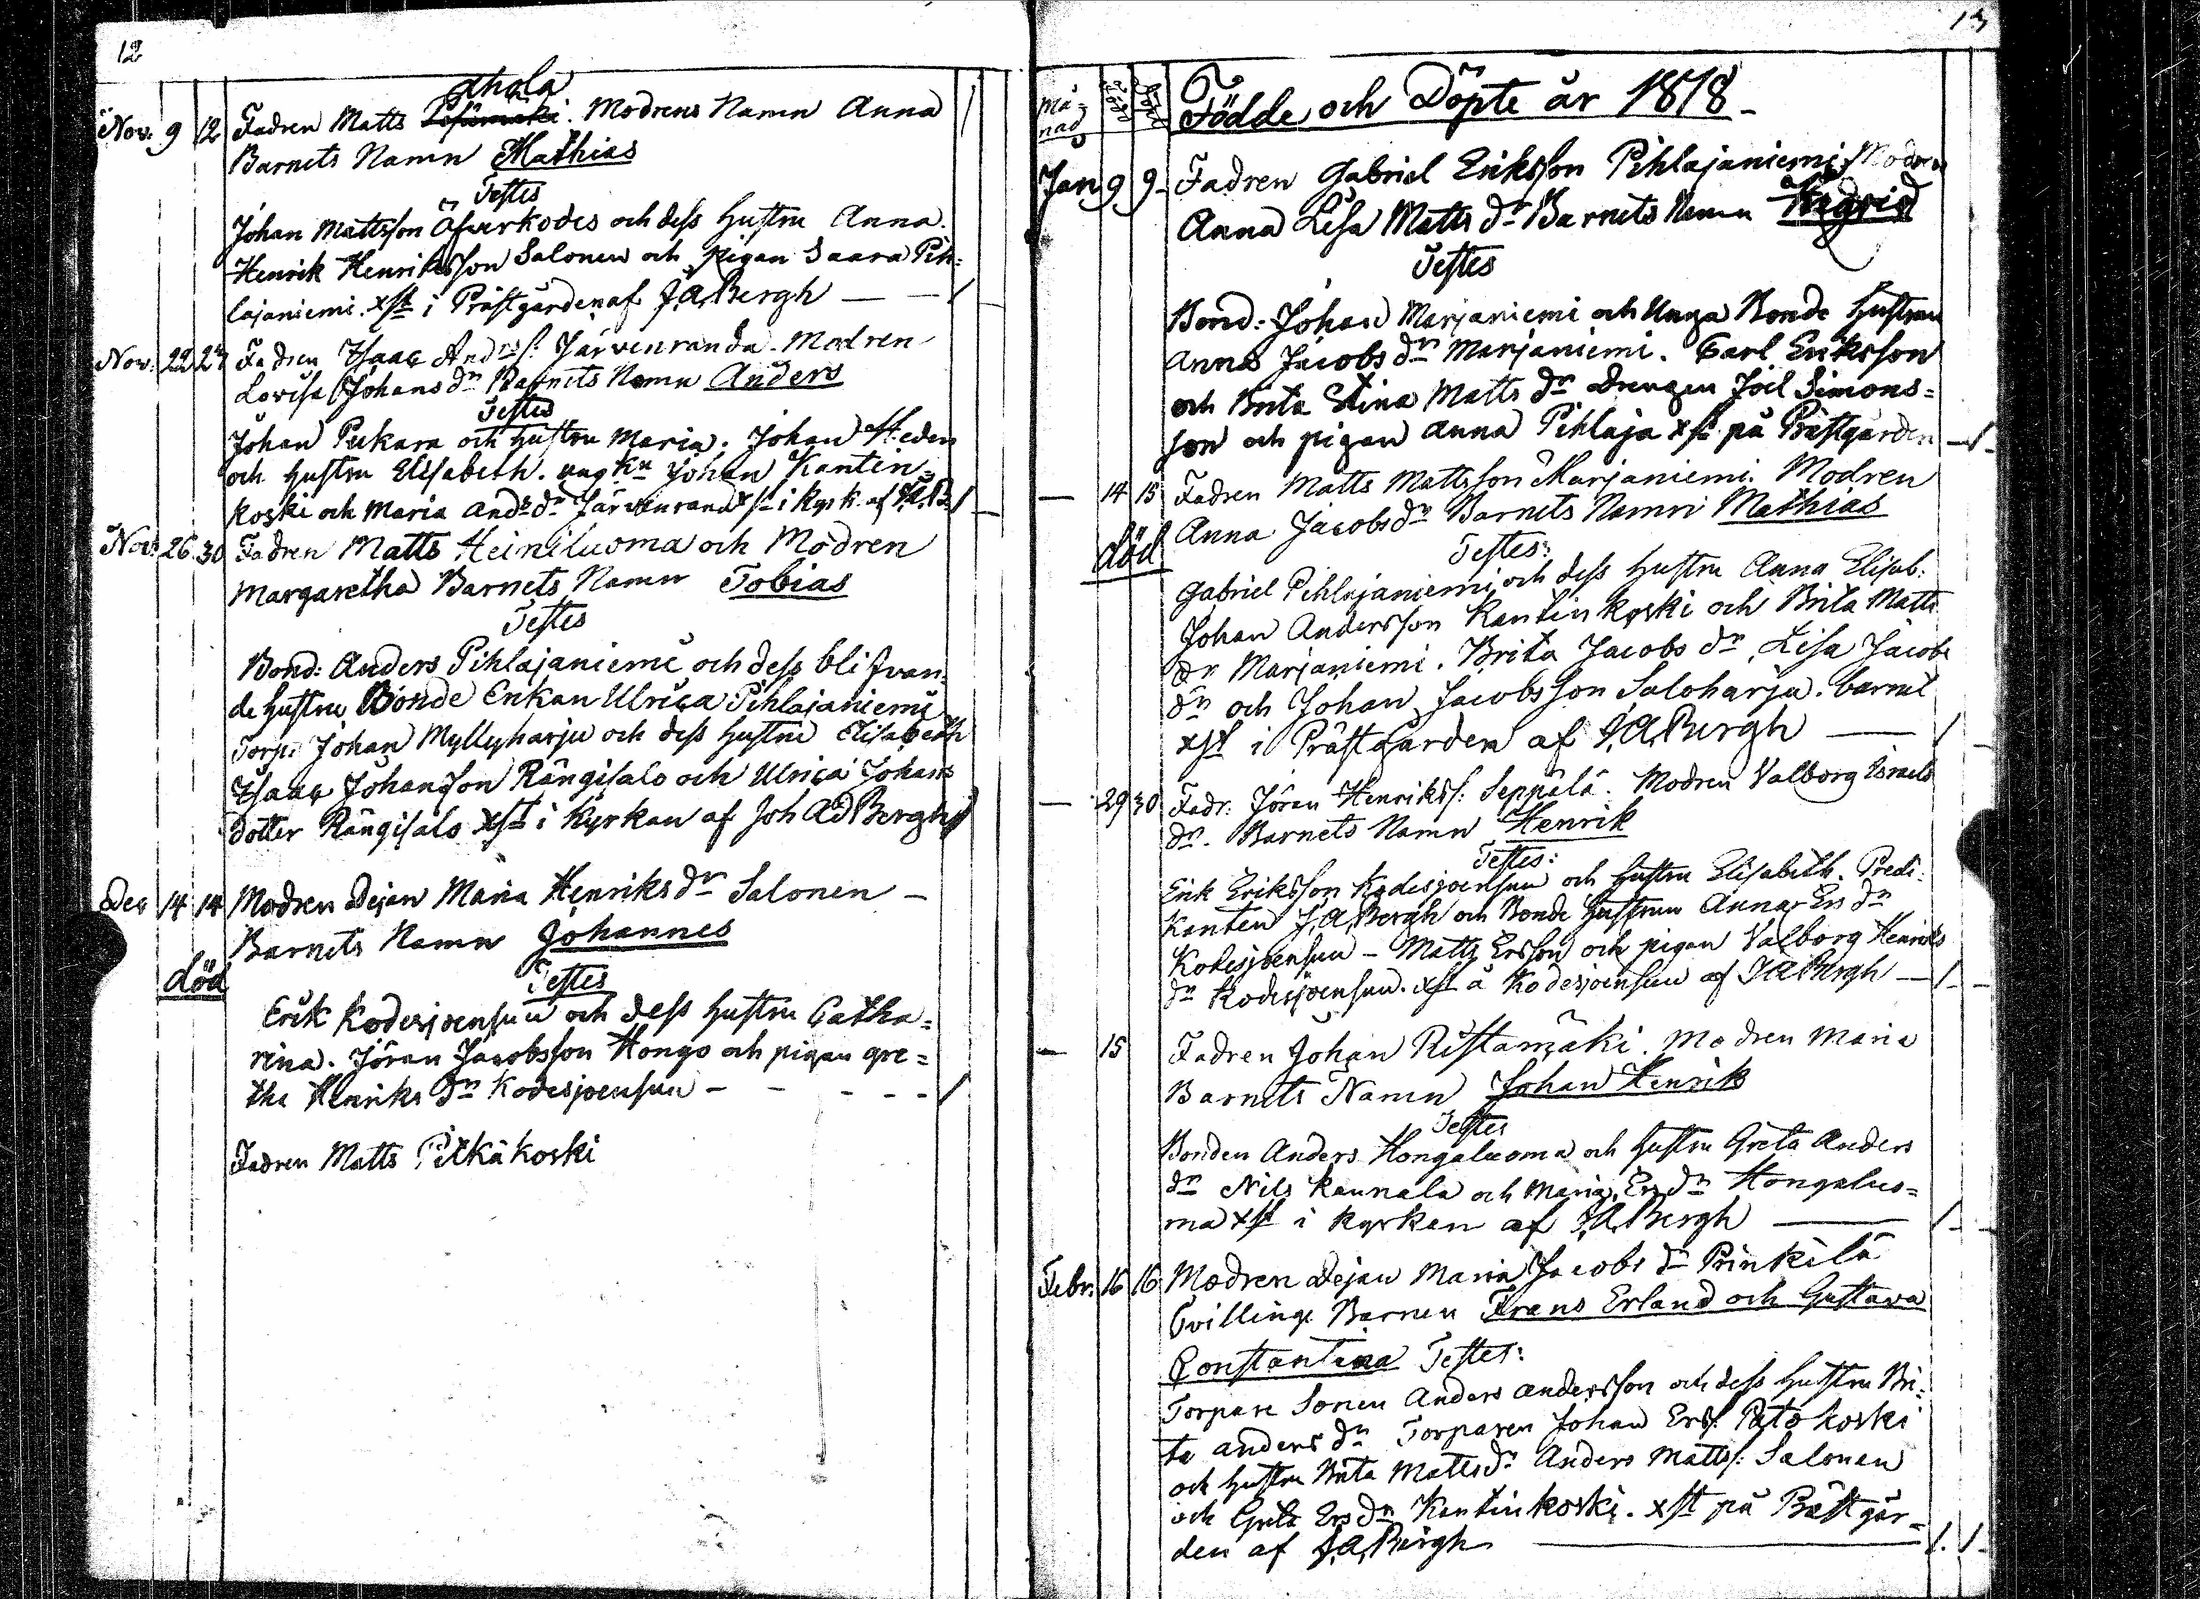 12
ahola
Nov: 9 12 Fadren Matts Modrens Namn Anna
Barnets Namn Mathias
Testes
Johan Mattsson Äfverkodes och dess hustru Anna.
Henrik Henriksson Salonen och pigan Saara Pih=
lajaniemi. xst i Prästgården af J.A.Bergh
Nov: 22 27 Fadren Isaac And Järvenranda. Modren
Lovisa Johans dr Barnets Namn Anders
Testes
Johan Pukara och hustru Maria. Johan Heden
och hustru Elisabeth. Johan Kantin=
koski och Maria And: dr Järvenrand xst i Kyrk. af J.A.B.
Nov: 26 30 Fadren Matts Heiniluoma och Modren
Margaretha Barnets Namn Tobias
Testes
Bond: Anders Pihlajaniemi och dess blifvan=
de hustru Bonde Enkan Ulrica Pihlajaniemi
Torp: Johan Myllyharju och dess hustru Elisabeth
Isaac Johansson Rängisalo och Ulrica Johans
dotter Rängisalo xst i Kyrkan af Joh Ad Bergh
Dec 14 14 Modren Dejan Maria Henriks dr Salonen -
Barnets Namn Johannes
död
Testes
Erik Kodesjoensuu och dess hustru Catha=
rina. Jöran Jacobsson Hongo och pigan gre=
tha Henriks dr Kodesjoensuu - - - - -
Fadren Matts Pitkäkoski
13
Må=
nad född döpt Födde och Döpte år 1818 -
Jan 9 9 - Fadren Gabriel Eriksson Pihlajaniemi Modren
Anna Lisa Matts dr Barnets Namn
Testes
Bond: Johan Marjaniemi och Unga Bonde hustrun
Anna Jacobs dr Marjaniemi. Carl Eriksson
och Brita Stina Matts dr drengen Joel Simons=
son och pigan Anna Pihlaja xst på Prästgården
— 14 15 Fadren Matts Mattsson Marjaniemi. Modren
Anna Jacobs dr Barnets Namn Mathias
död
Testes:
Gabriel Pihlajaniemi och dess hustru Anna Elisab:
Johan Andersson Kantinkoski och Brita Matts
dr Marjaniemi. Brita Jacobs dr, Lisa Jacobs
dr och Johan Jacobsson Saloharju. barnet
xst i Prästgården af J.A.Bergh
— 29 30 Fadr: Jöran Henrikss: Seppälä. Modren Valborg Israels
dr. Barnets Namn Henrik
Testes:
Erik Eriksson Kodesjoensuu och hustru Elisabeth. Predi=
kanten J.A.Bergh och Bonde hustrun Anna Ers dr
Kodesjoensuu - Matts Ersson och pigan Valborg Henriks
dr Kodesjoensuu. xst å Kodesjoensuu af J A Bergh
— 15 Fadren Johan Ristamäki. Modren Maria
Barnets Namn Johan Henrik
Testes
Bonden Anders Hongaluoma och hustru Greta Anders
dr Nils Kaunala och Maria Ers dr Hongaluo=
ma xst i Kyrkan af J.A.Bergh
Febr: 16 16 Modren Dejan Maria Jacobs dr Prinkilä
Tvillinge Barnen Frans Erland och Gustava
Constantina Testes:
Torpare Sonen Anders Andersson och dess hustru Bri=
ta Anders dr Torparen Johan Erss: Patokoski
och hustru Brita Matts dr Anders Mattss: Salonen
och Greta Ers dr Kantinkoski. xst på Prästgår=
den af J.A.Bergh